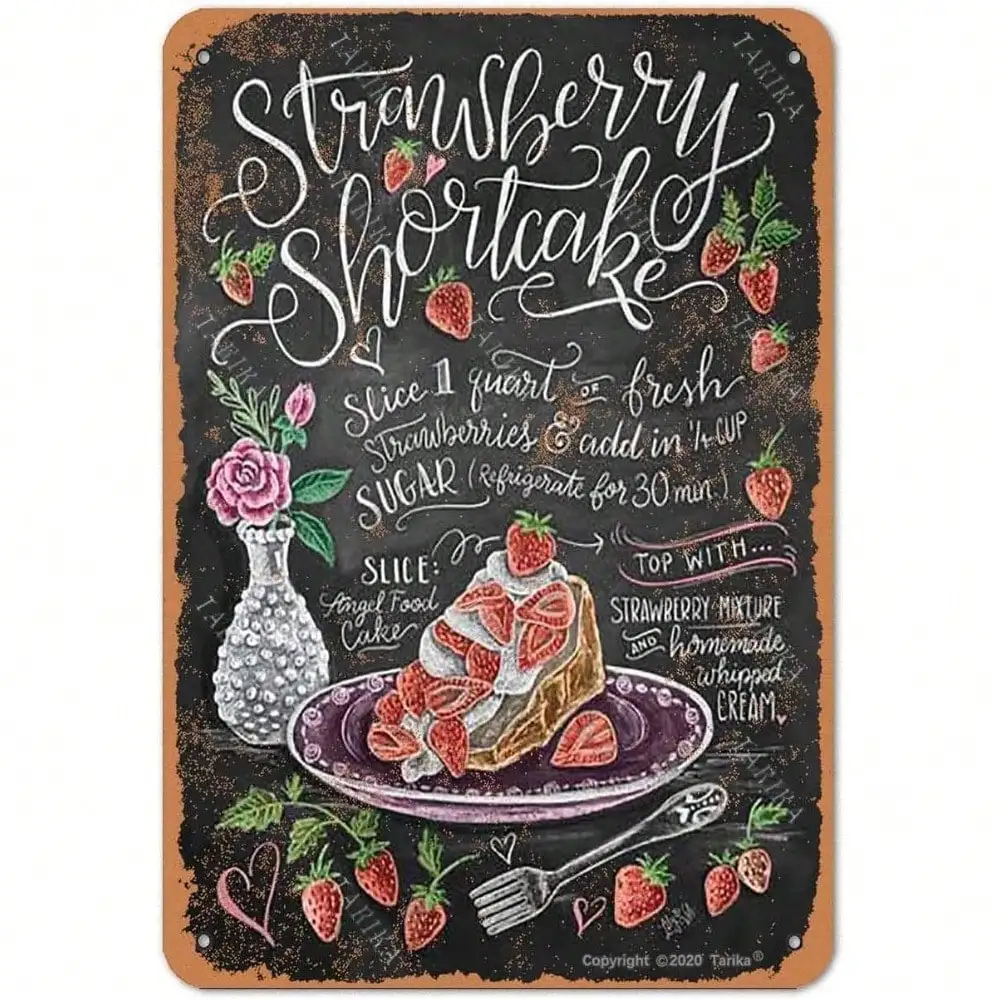 Strawberry
Shortcake
Slice 1 quart OF fresh
Strawberries & add in 1/4 CUP
SUGAR (Refrigerate for 30 min.)
SLICE:
Angel Food
Cake
TOP WITH...
STRAWBERRY MIXTURE
AND homemade
whipped
CREAM
TARIKA
TARIKA
TARIKA
TARIKA
TARIKA
TARIKA
TARIKA
Copyright ©2020 Tarika®